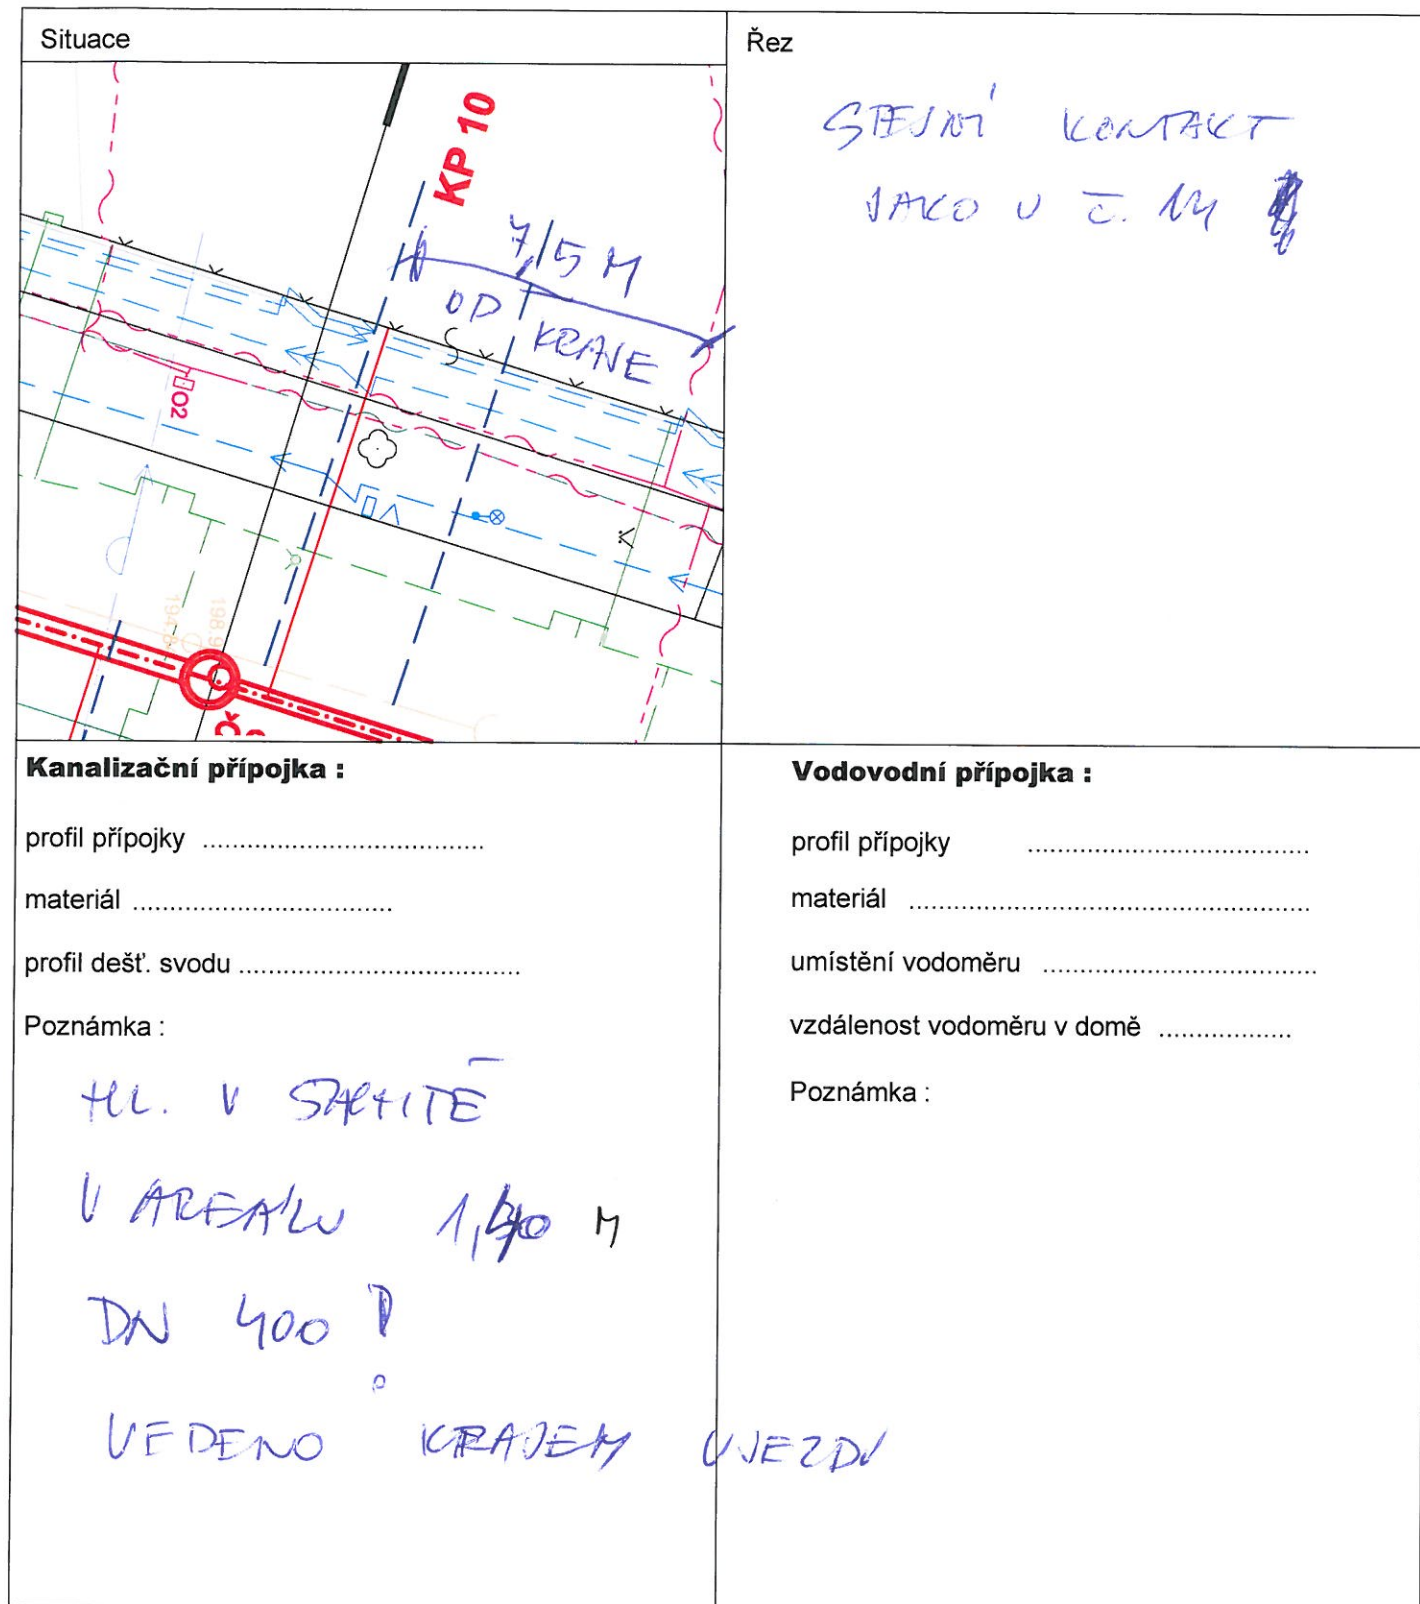 Situace
Řez
KP 10
7,5 M
OD
KRAJE
O2
198.9
194.6
STEJNÝ KONTAKT
JAKO U Č. 14
Kanalizační přípojka :
profil přípojky ......................................
materiál ...................................
profil dešť. svodu ......................................
Poznámka :
HL. V ŠACHTĚ
V AREÁLU 1,40 M
DN 400 !
VEDENO KRAJEM VJEZDU
Vodovodní přípojka :
profil přípojky ......................................
materiál ......................................................
umístění vodoměru .....................................
vzdálenost vodoměru v domě ..................
Poznámka :